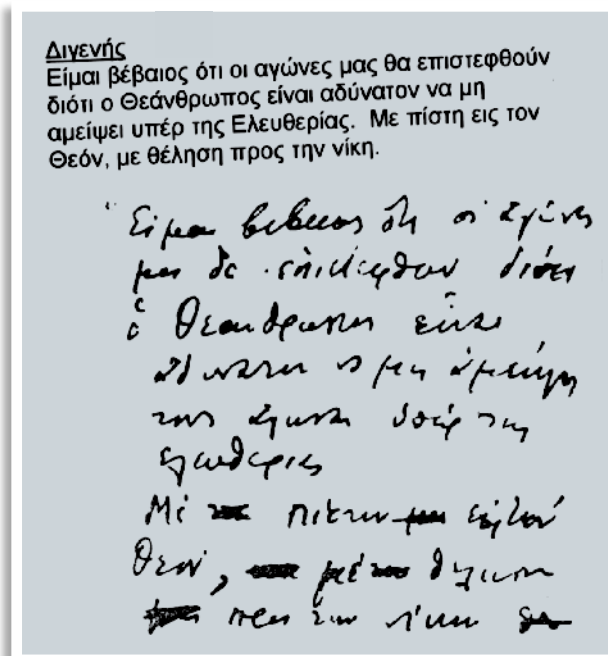 Διγενής
Είμαι βέβαιος ότι οι αγώνες μας θα επιστεφθούν
διότι ο Θεάνθρωπος είναι αδύνατον να μη
αμείψει υπέρ της Ελευθερίας. Με πίστη εις τον
Θεόν, με θέληση προς την νίκη.
"Είμαι βέβαιος ότι οι αγώνες
μας θα επιστεφθούν διότι
ὁ Θεάνθρωπος είναι
αδύνατον να μη ἀμείψη
τους αγώνας ὑπέρ της
ελευθερίας
Μέ πίστιν εις τόν
Θεόν, μέ θέλησιν
προς την νίκην